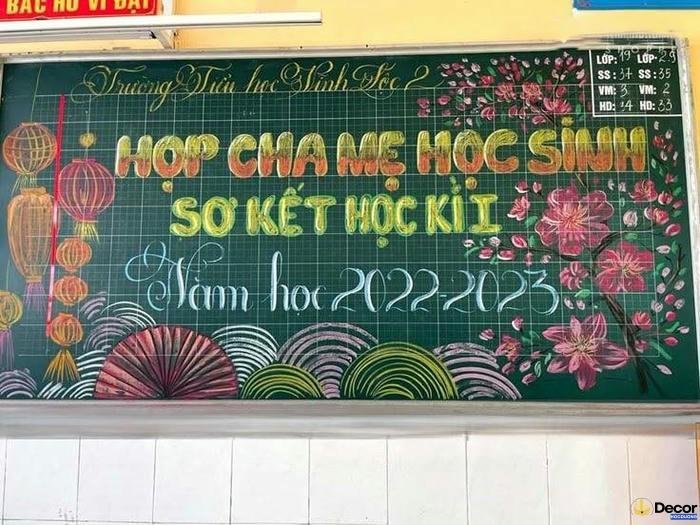 BÁC HỒ VĨ ĐẠI
Trường Tiểu học Vĩnh Lộc 2
HỌP CHA MẸ HỌC SINH
SƠ KẾT HỌC KÌ I
Năm học 2022-2023
LỚP: 19 LỚP: 29
SS: 37 SS: 35
VM: 3 VM: 2
HD: 34 HD: 33
Decor